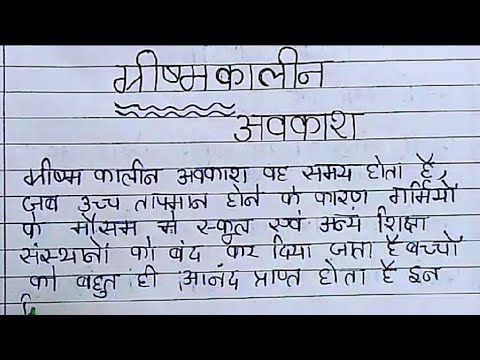 ग्रीष्मकालीन
अवकाश
ग्रीष्म कालीन अवकाश वह समय होता है,
जब उच्च तापमान होने के कारण गर्मियों
के मौसम मे स्कूल एवं अन्य शिक्षा
संस्थानों को बंद कर दिया जाता है बच्चों
को बहुत ही आनंद प्राप्त होता है इन